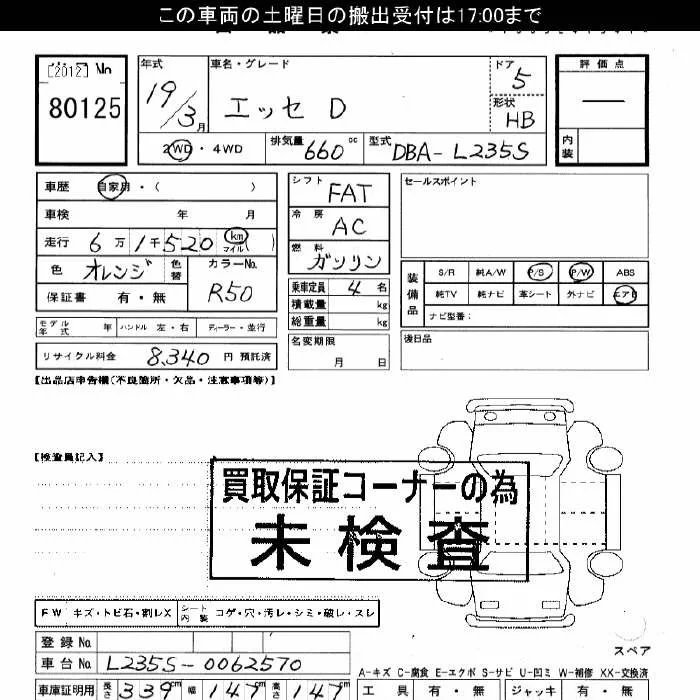 この車両の土曜日の搬出受付は17:00まで
[2012] No
80125
年式
19/3月
車名・グレード
エッセ D
ドア
5
形状
HB
評価点
—
内装
2WD・4WD
排気量 660cc
型式 DBA-L235S
車歴 自家用・( )
車検 年 月
走行 6万1千520 km マイル( )
色 オレンジ 色替
カラーNo.
R50
保証書 有・無
モデル年式 年 ハンドル 左・右 ディーラー・並行
リサイクル料金 8,340 円 預託済
シフト FAT
冷房 AC
燃料 ガソリン
乗車定員 4 名
積載量 kg
総重量 kg
名変期限
月 日
セールスポイント
装備品
S/R 純A/W P/S P/W ABS
純TV 純ナビ 革シート 外ナビ エアB
ナビ型番:
後日品
【出品店申告欄(不良箇所・欠品・注意事項等)】
【検査員記入】
買取保証コーナーの為
未検査
FW キズ・トビ石・割レX シート内装 コゲ・穴・汚レ・シミ・破レ・スレ
スペア
登録No.
車台No. L235S-0062570
A-キズ C-腐食 E-エクボ S-サビ U-凹ミ W-補修 XX-交換済
車庫証明用 長さ 339cm 幅 147cm 高さ 147cm
工具 有・無 ジャッキ 有・無